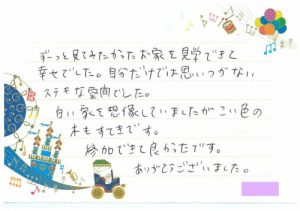 ずーっと見てみたかったお家を見学できて
幸せでした。自分だけでは思いつかない
ステキな空間でした。
白い家を想像していましたがこい色の
木もすてきです。
参加できて良かったです。
ありがとうございました。